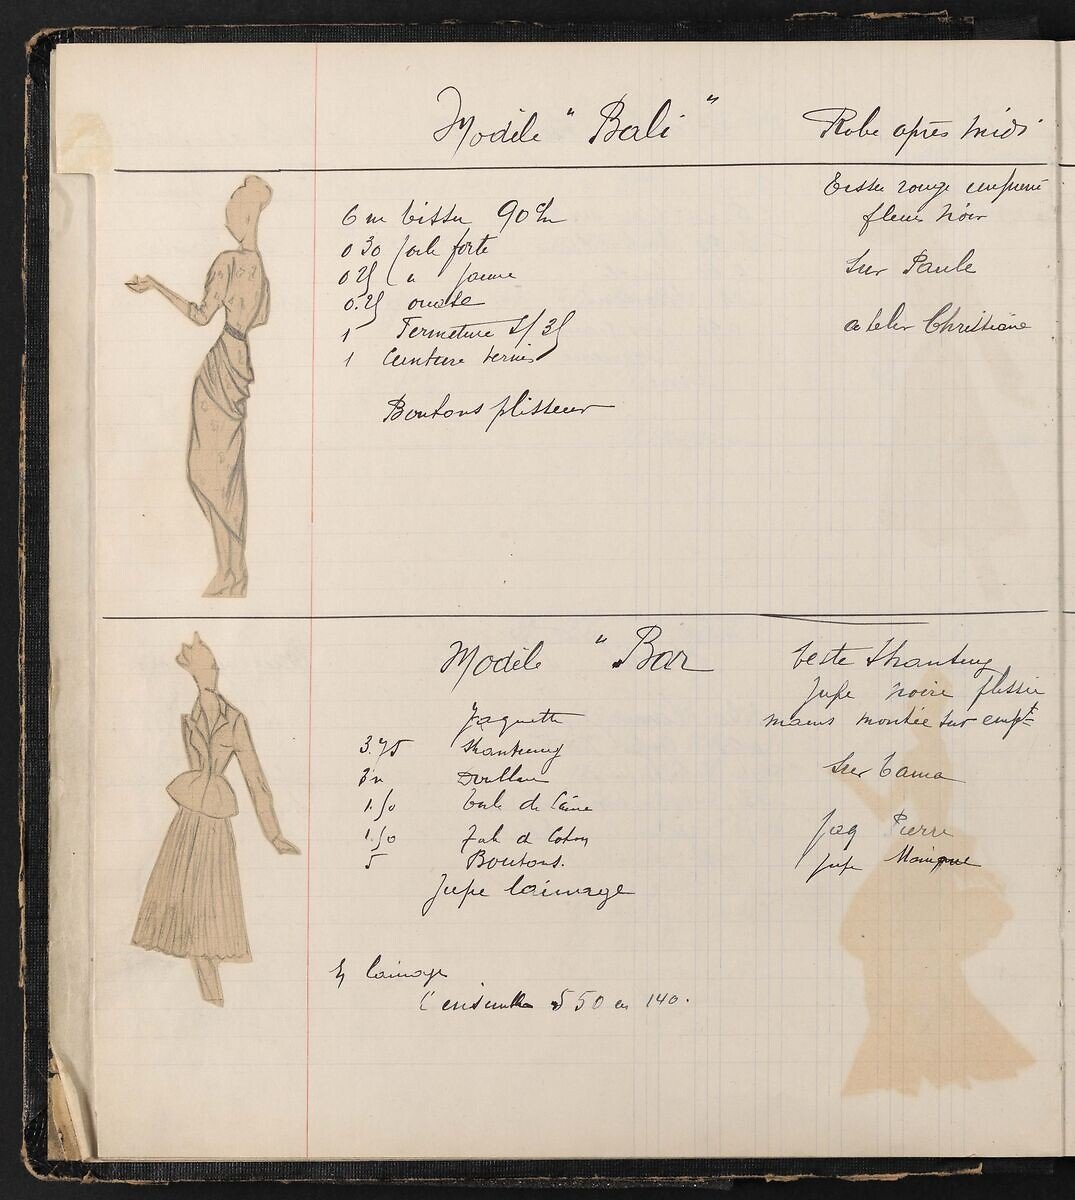 Modèle "Bali"
Robe après midi
6 m tissu 90 c/m
0 30 toile forte
0 25 " jaune
0.25 ouate
1 Fermeture S/35
1 Ceinture vernis
Boutons plisseur
Tissu rouge imprimé
fleurs noir
sur Paule
atelier Christiane
Modèle "Bar
Jaquette
3.75 shantung
3 m Doublure
1.50 toile de laine
1.50 Toile de Coton
5 Boutons.
Jupe lainage
Veste Shantung
Jupe noire plissée
mains montée sur empt
sur Tania
Jaq Pierre
Jupe Monique
En lainage
L'ensemble 5 50 en 140.